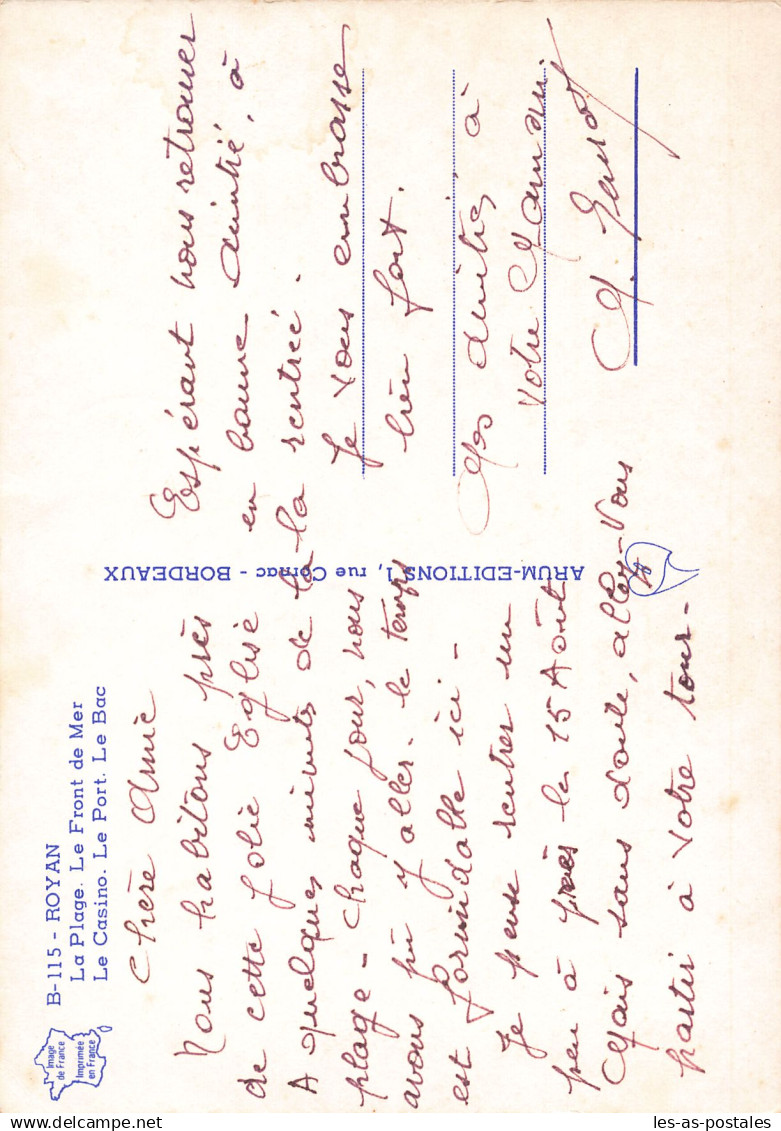 Image
de France
Imprimée
en France
B-115 - ROYAN
La Plage. Le Front de Mer
Le Casino. Le Port. Le Bac
Chère Amie
Nous habitons près
de cette jolie Eglise
A quelques minutes de la
plage - chaque jour, nous
avons pu y aller - le temps
est formidable ici -
Je pense rentrer un
peu à près le 15 Août
Mais sans doute, allez-vous
partir à votre tour -
ARUM-EDITIONS 1, rue Cornac - BORDEAUX
Espérant vous retrouver
en bonne amitié, à
la rentrée.
Je vous embrasse
bien fort.
Mes amitiés à
votre Maman
www.les-as-postales